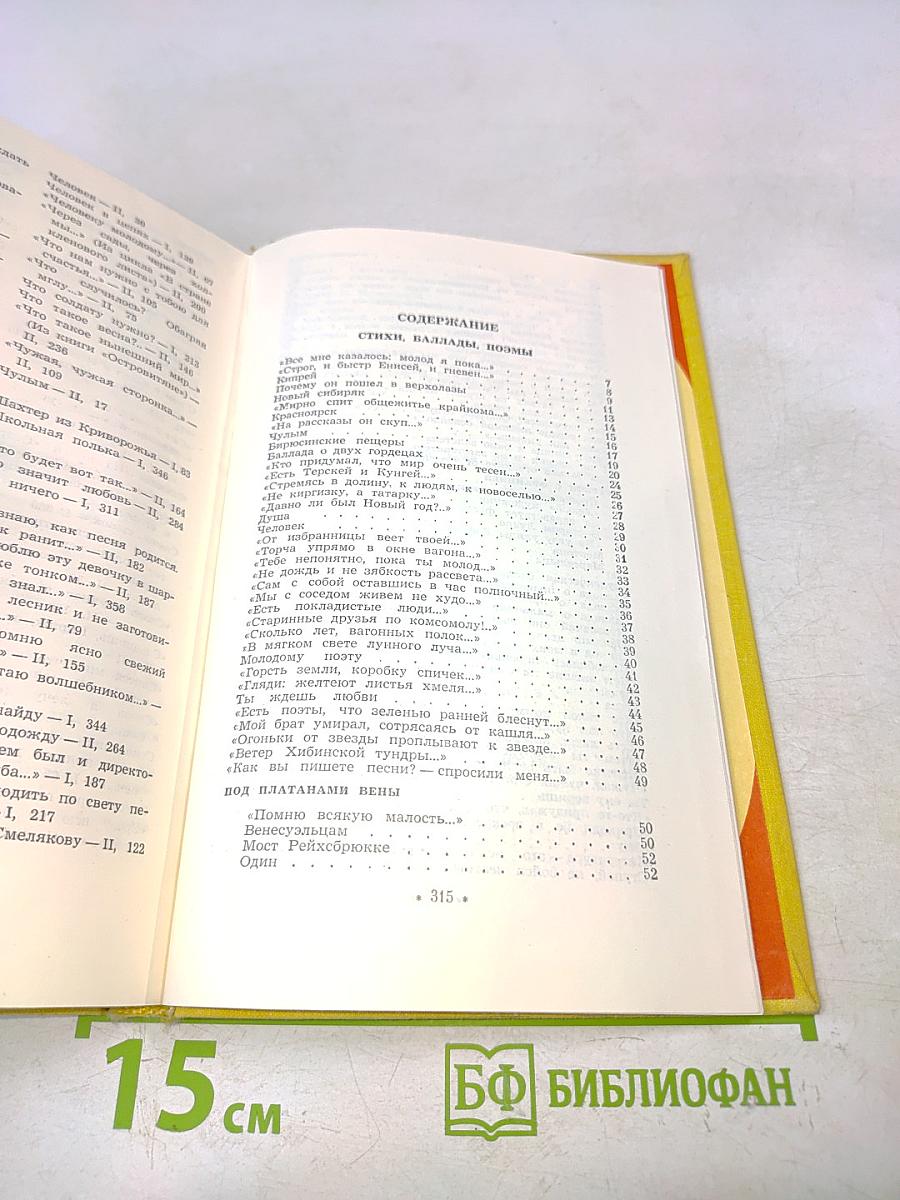 ждать
Человек — II, 30
Человек в цепях — I, 130
«Человеку молодому...» — II, 67
«Через сады, через хол-
мы...» (Из цикла «В стране
кленового листа») — II, 200
«Что нам нужно с тобою для
счастья...» — II, 105
«Что случилось? Обагрил
мглу...» — II, 75
Что солдату нужно? — I, 213
Что такое весна?.. — II, 146
«Что такое нынешний мир...»
(Из книги «Островитяне») —
II, 236
«Чужая, чужая сторонка...» —
II, 109
Чулым — II, 17
Шахтер из Криворожья — I, 83
Школьная полька — I, 346
что будет вот так...» — II, 164
значит любовь — II, 284
ничего — I, 311
знаю, как песня родится.
к ранит...» — II, 182
люблю эту девочку в шар-
ке тонком...» — II, 187
знал...» — I, 358
лесник и не заготови-
...» — II, 79
помню ясно свежий
» — II, 155
таю волшебником...» —
найду — I, 344
подожду — II, 264
ем был и директо-
ба...» — I, 187
одить по свету пе-
I, 217
Смелякову — II, 122
СОДЕРЖАНИЕ
СТИХИ, БАЛЛАДЫ, ПОЭМЫ
«Все мне казалось: молод я пока...» 7
«Строг, и быстр Енисей, и гневен...» 8
Кипрей 9
Почему он пошел в верхолазы 11
Новый сибиряк 13
«Мирно спит общежитье крайкома...» 14
Красноярск 15
«На рассказы он скуп...» 16
Чулым 17
Бирюсинские пещеры 19
Баллада о двух гордецах 20
«Кто придумал, что мир очень тесен...» 24
«Есть Терскей и Кунгей...» 25
«Стремясь в долину, к людям, к новоселью...» 26
«Не киргизку, а татарку...» 27
«Давно ли был Новый год?..» 28
Душа 29
Человек 30
«От избранницы веет твоей...» 31
«Торча упрямо в окне вагона...» 32
«Тебе непонятно, пока ты молод...» 33
«Не дождь и не зябкость рассвета...» 34
«Сам с собой оставшись в час полночный...» 35
«Мы с соседом живем не худо...» 36
«Есть покладистые люди...» 37
«Старинные друзья по комсомолу!..» 38
«Сколько лет, вагонных полок...» 39
«В мягком свете лунного луча...» 40
Молодому поэту 41
«Горсть земли, коробку спичек...» 42
«Гляди: желтеют листья хмеля...» 43
Ты ждешь любви 44
«Есть поэты, что зеленью ранней блеснут...» 45
«Мой брат умирал, сотрясаясь от кашля...» 46
«Огоньки от звезды проплывают к звезде...» 47
«Ветер Хибинской тундры...» 48
«Как вы пишете песни? — спросили меня...» 49
ПОД ПЛАТАНАМИ ВЕНЫ
«Помню всякую малость...» 50
Венесуэльцам 50
Мост Рейхсбрюкке 52
Один 52
* 315 *
15 см
БФ БИБЛИОФАН